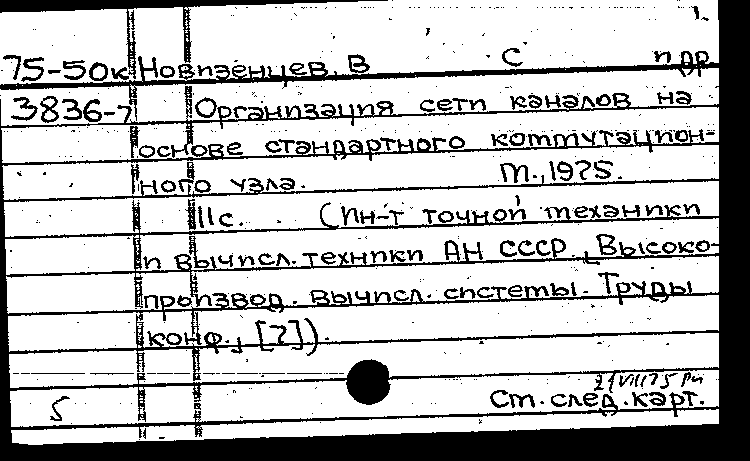 1.
75-50к Новизенцев, В С и др
3836-7 Организация сети каналов на
основе стандартного коммутацион-
ного узла. М., 1975.
11с. (Ин-т точной механики
и вычисл. техники АН СССР, Высоко-
производ. вычисл. системы. Труды
конф., [7]).
21 VIII 75
5 См. след. карт.